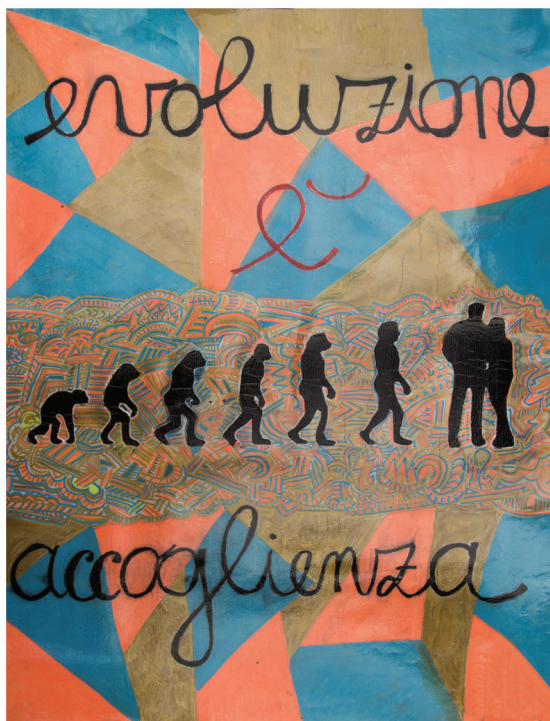 evoluzione
è
accoglienza